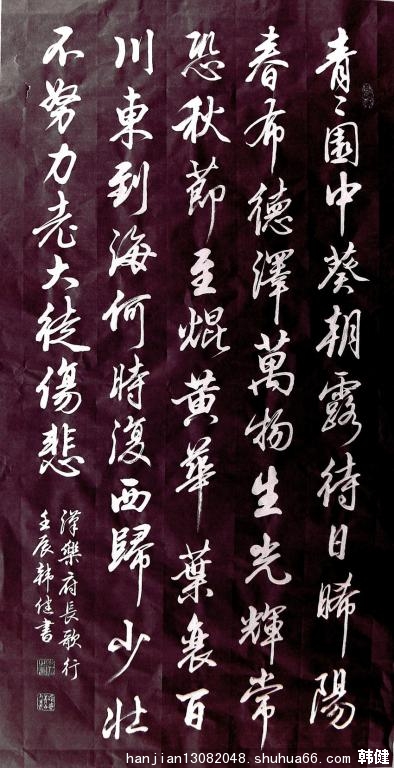 青〻園中葵朝露待日晞陽
春布德澤萬物生光輝常
恐秋節至焜黄華葉衰百
川東到海何時復西歸少壯
不努力老大徒傷悲
漢樂府長歌行
壬辰韩健書
hanjian13082048.shuhua66.com 韩健